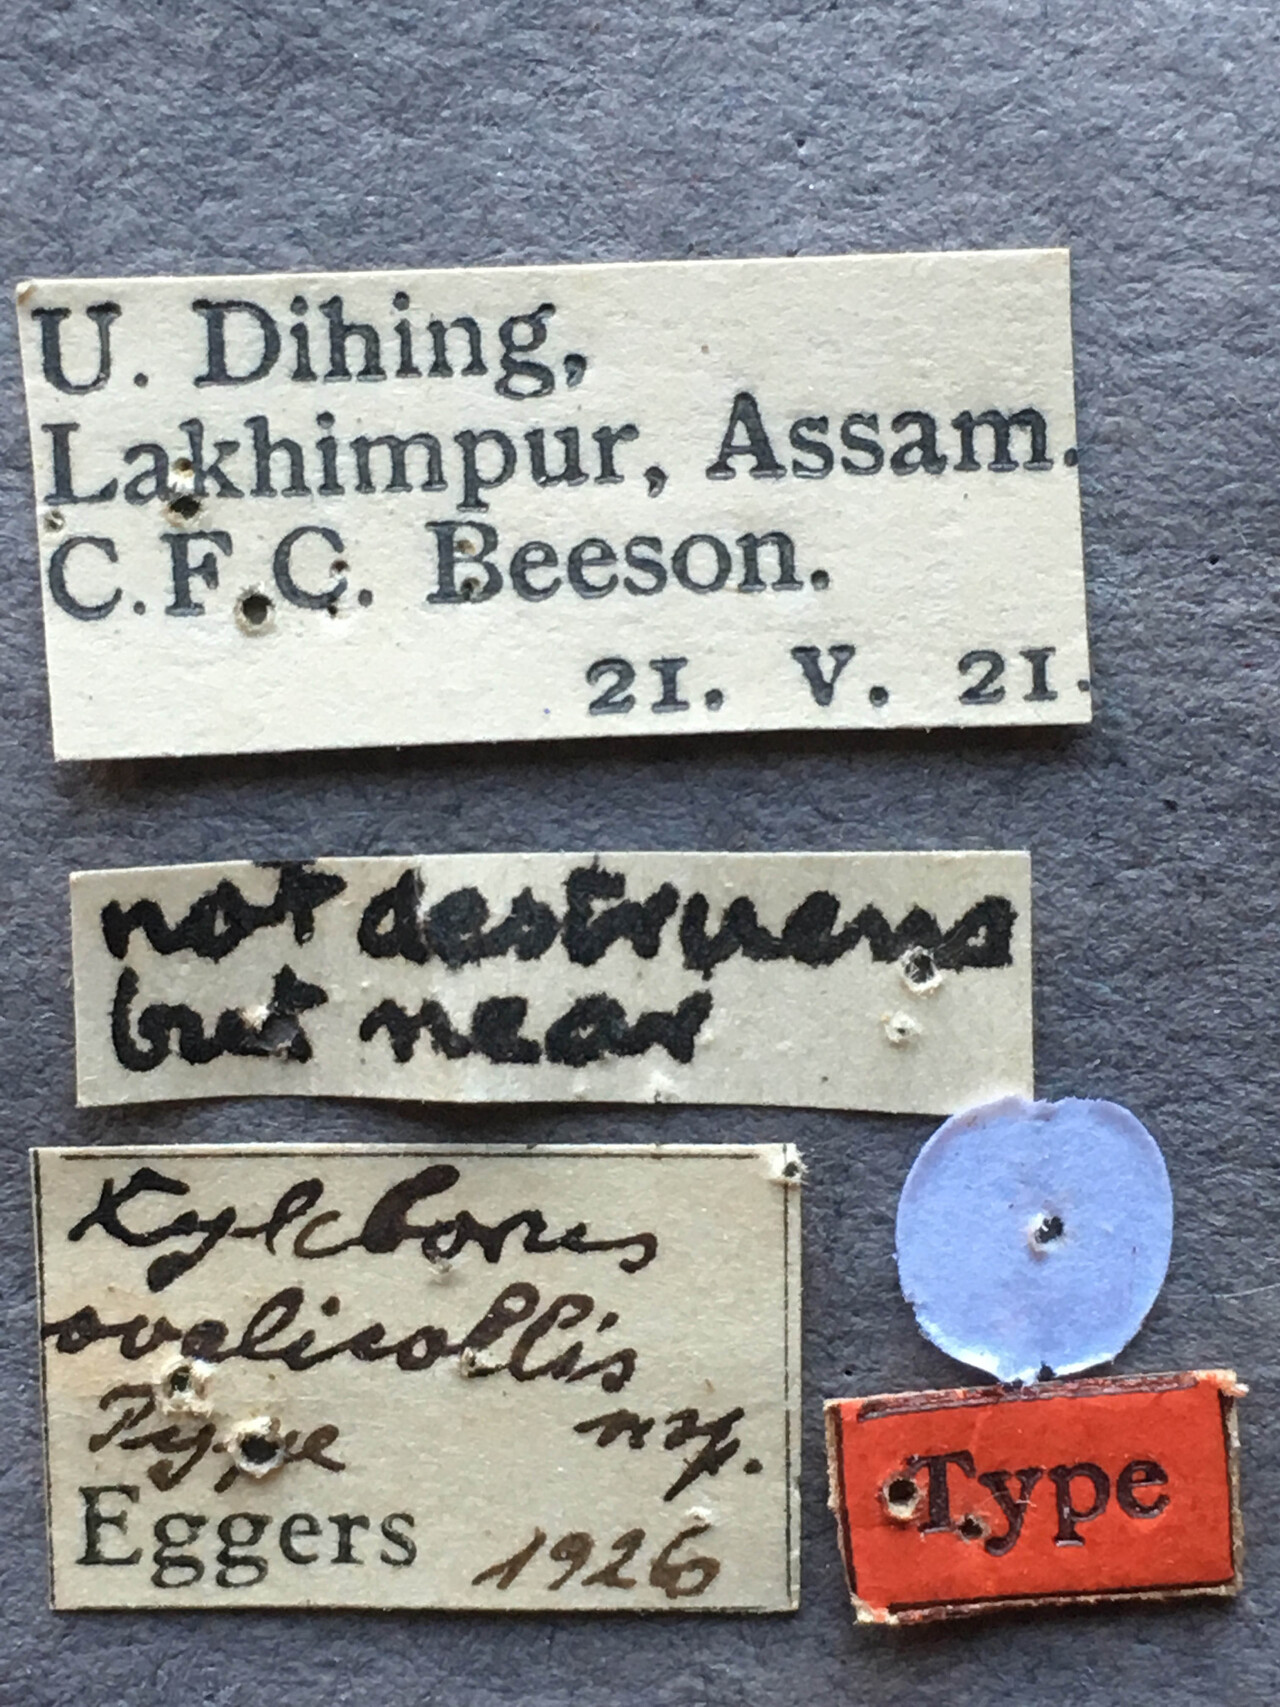 U. Dihing,
Lakhimpur, Assam.
C.F.C. Beeson.
21. V. 21.
not destruens
but near
Xyleborus
ovalicollis
Type n sp.
Eggers 1926
Type